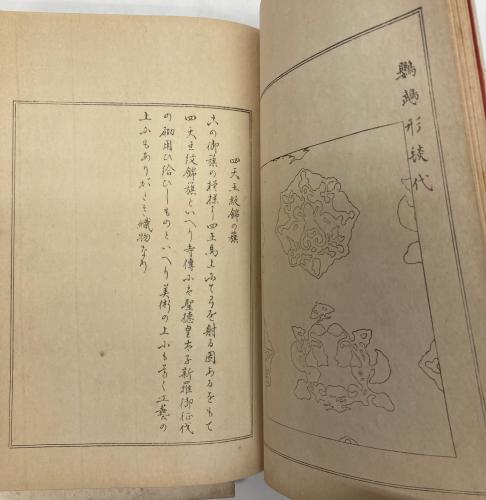 鸚鵡形毯代
四天王紋錦の旗
この御旗の模様ハ四王馬上ふて弓を射る圖あるをもて
四天王紋錦旗といへり寺傳ふハ聖德皇太子新羅御征伐
の砌用ひ給ひしものといへり美術の上ふも工藝の
上ふもありがたき織物なり